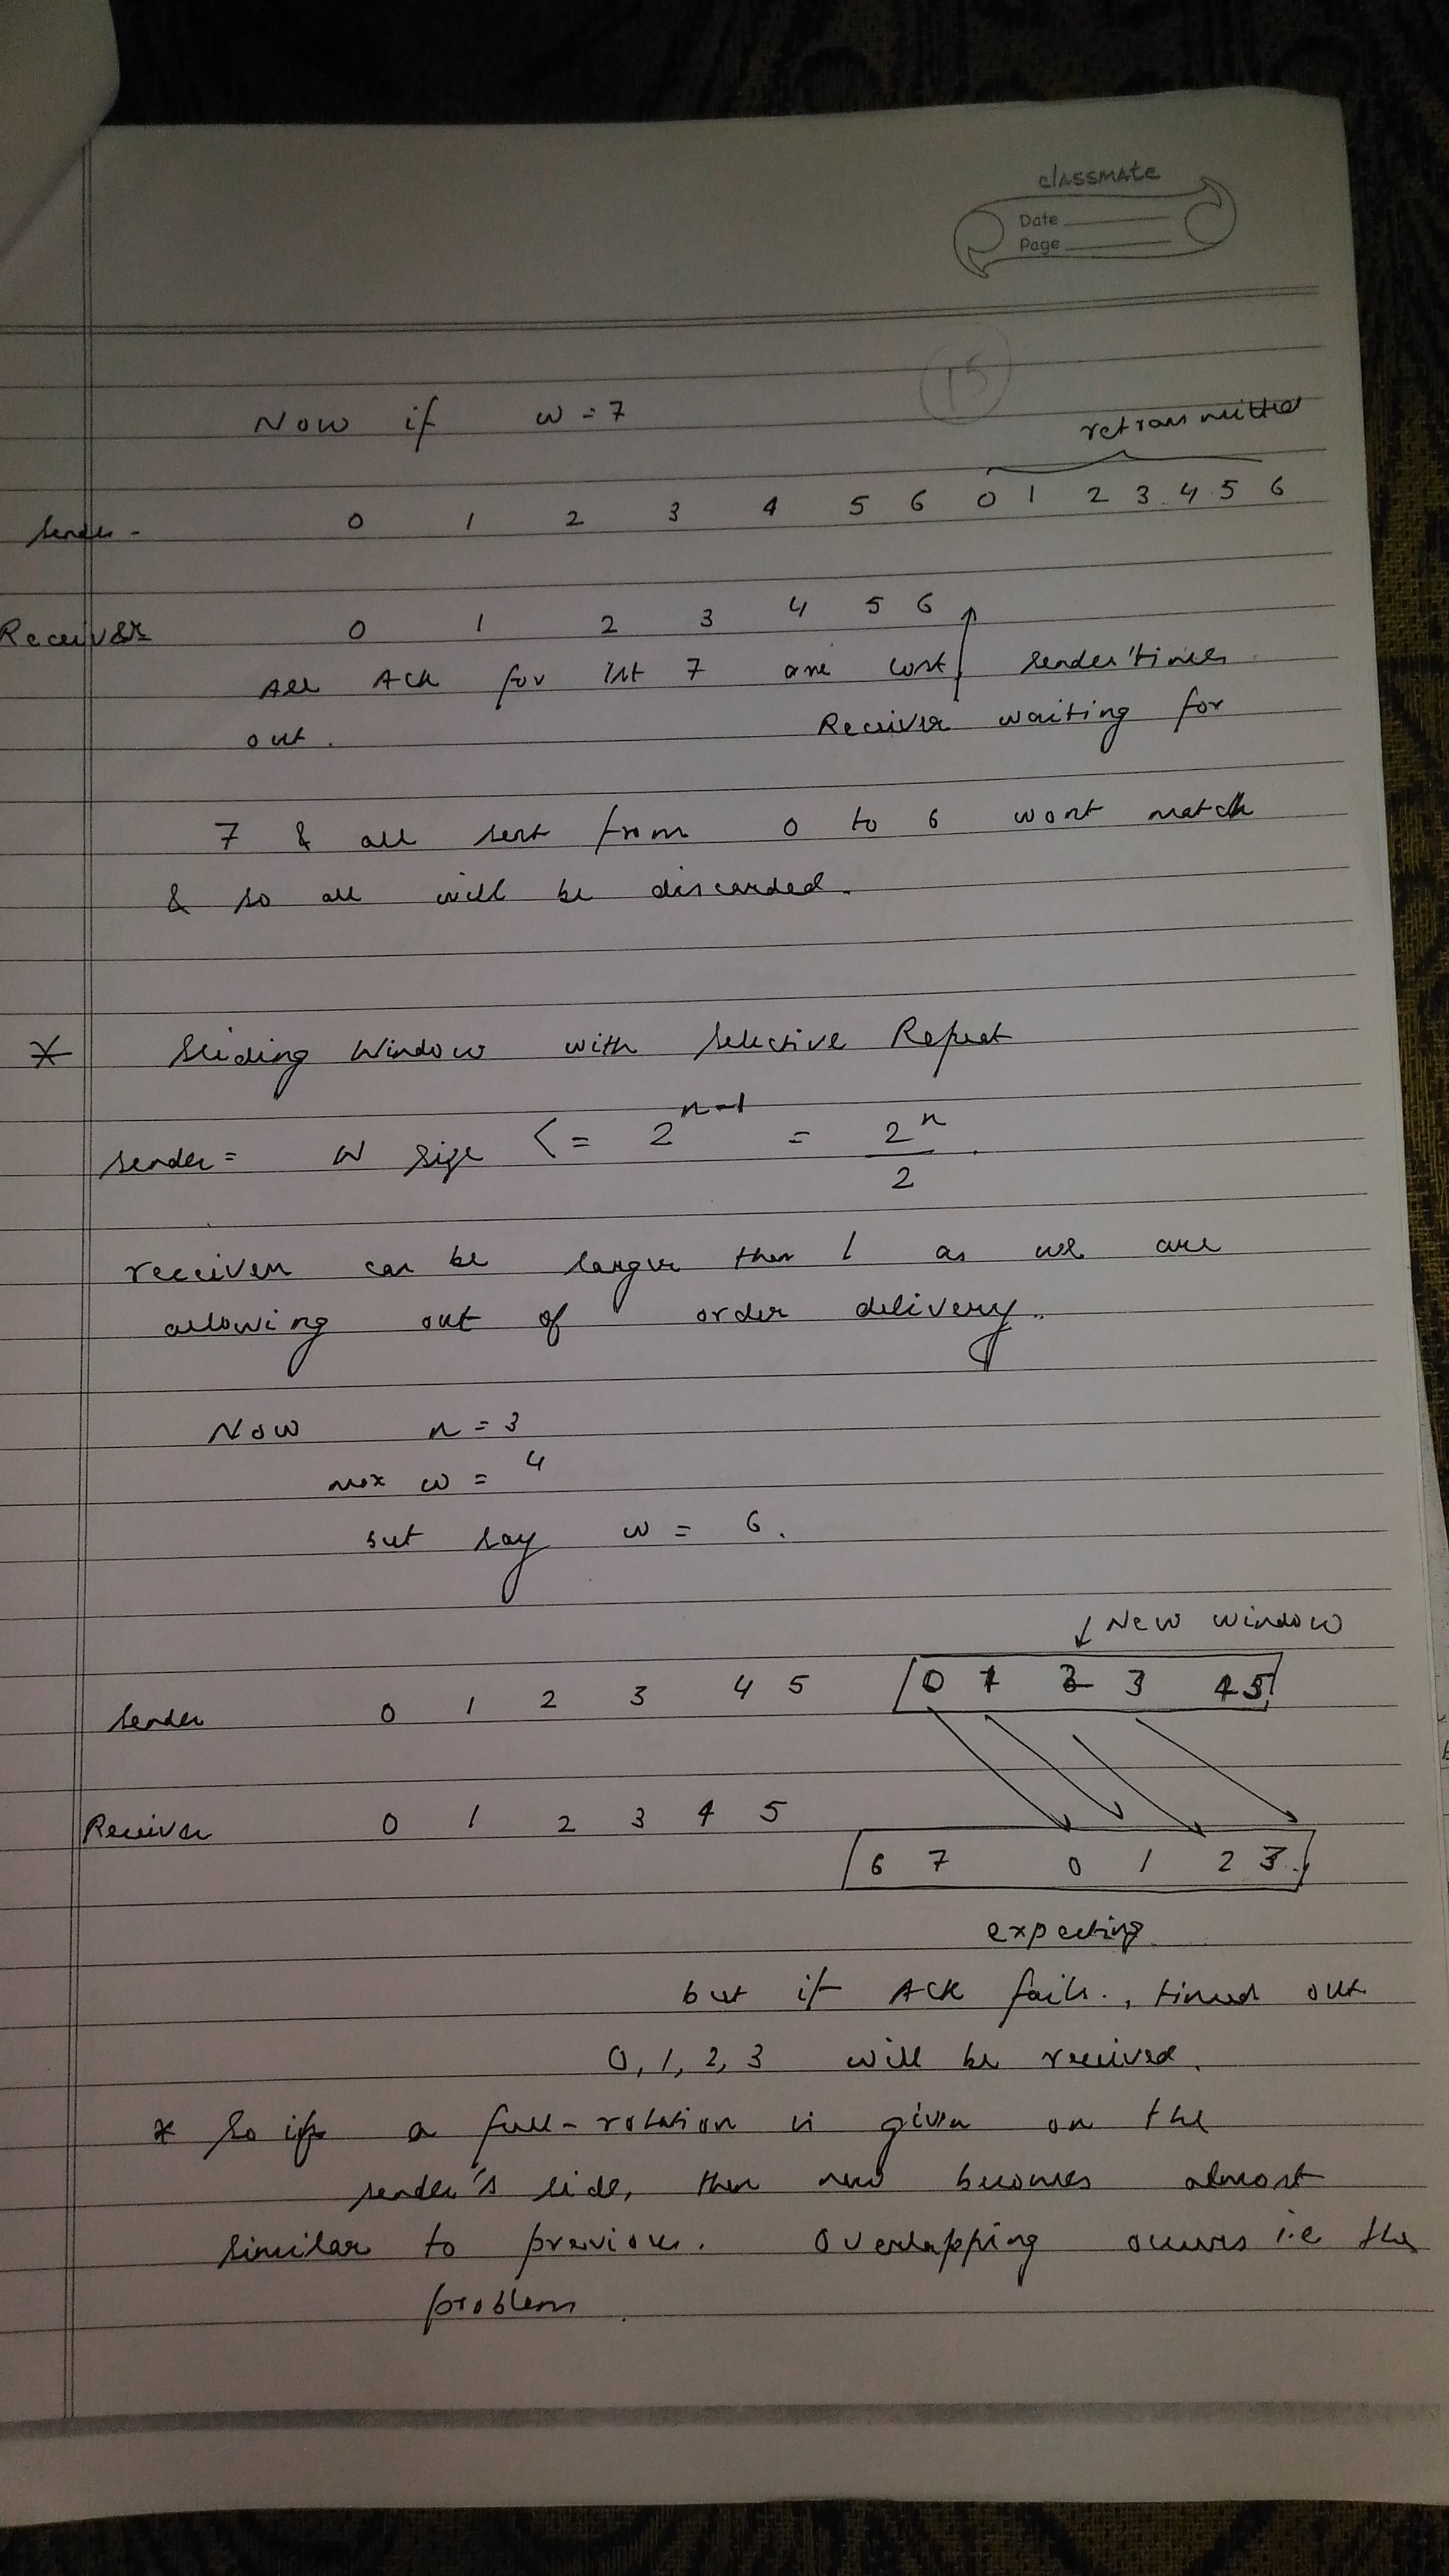 classmate
Date
Page
15
Now if w = 7
retransmitted
Sender - 0 1 2 3 4 5 6 0 1 2 3 4 5 6
Receiver 0 1 2 3 4 5 6
All ACK for 1st 7 are lost sender times
out. Receiver waiting for
7 & all sent from 0 to 6 wont match
& so all will be discarded.
* Sliding Window with Selective Repeat
Sender = W size <= 2^{n-1} = 2^n / 2.
receiver can be larger then 1 as we are
allowing out of order delivery.
Now n = 3
max w = 4
but say w = 6.
↓ New window
Sender 0 1 2 3 4 5 0 1 2 3 4 5
Receiver 0 1 2 3 4 5
6 7 0 1 2 3
expecting
but if ACK fails., timed out
0, 1, 2, 3 will be received.
* So if a full-rotation is given on the
sender's side, then new becomes almost
similar to previous. Overlapping occurs i.e the
problem.